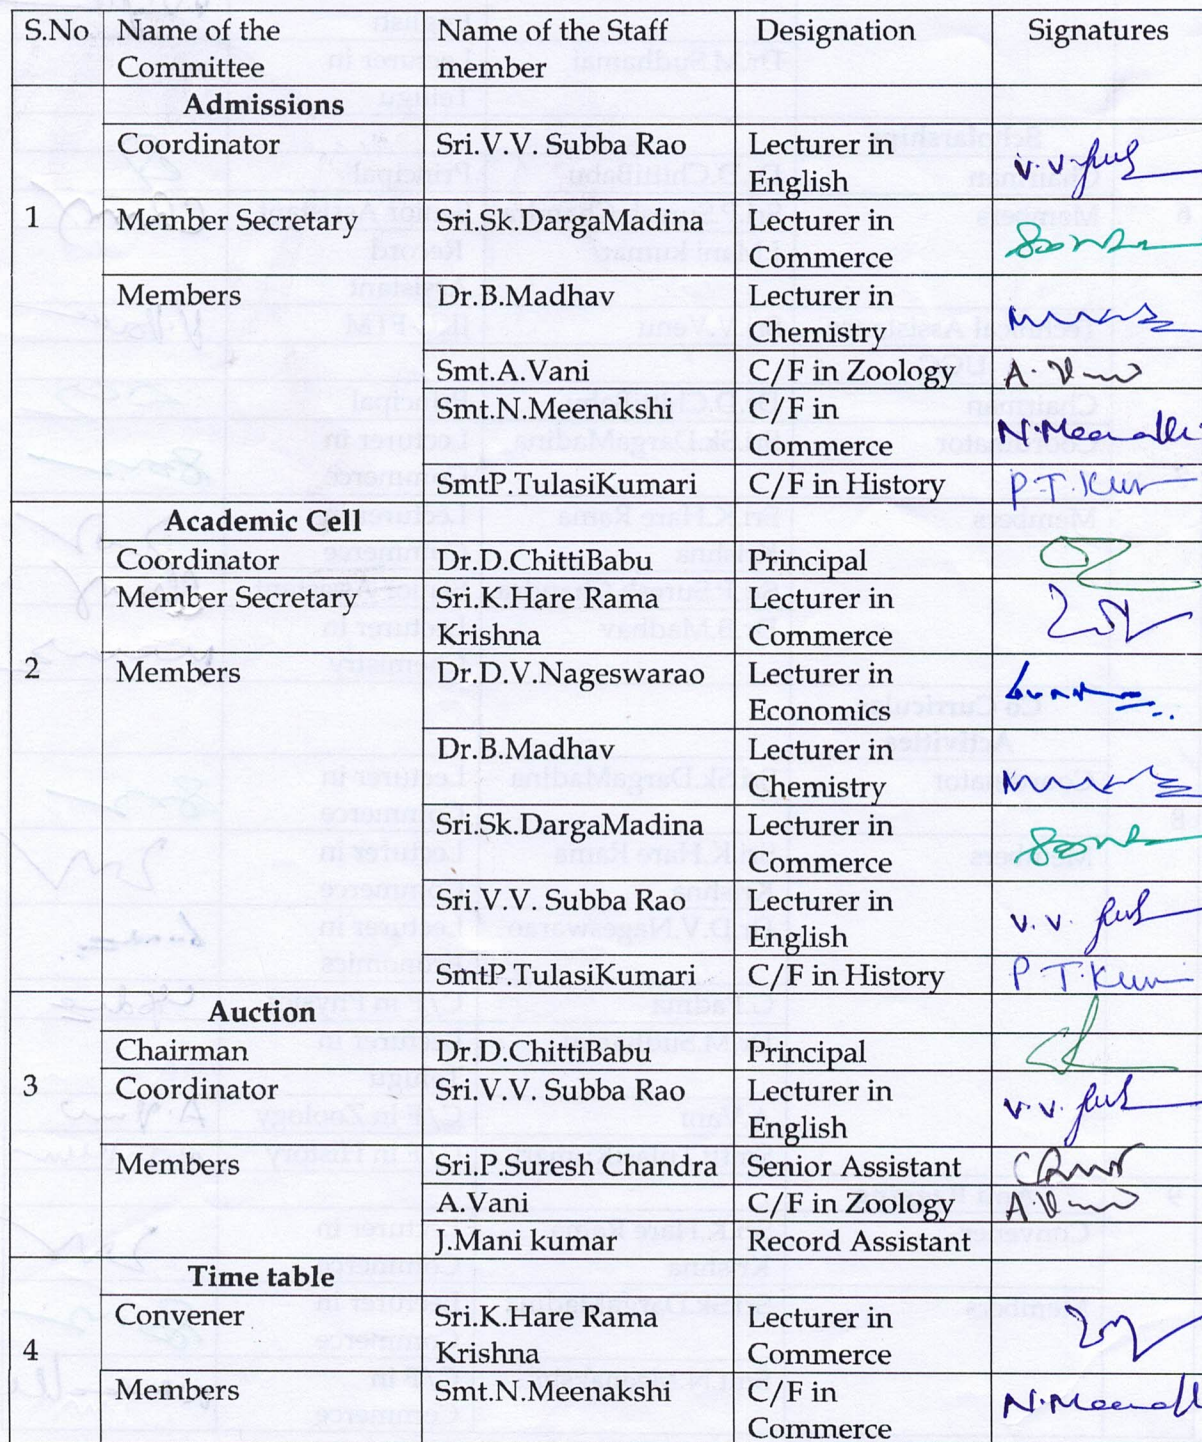 S.No Name of the Committee Name of the Staff member Designation Signatures
Admissions
Coordinator Sri.V.V. Subba Rao Lecturer in English
1 Member Secretary Sri.Sk.DargaMadina Lecturer in Commerce
Members Dr.B.Madhav Lecturer in Chemistry
Smt.A.Vani C/F in Zoology
Smt.N.Meenakshi C/F in Commerce
SmtP.TulasiKumari C/F in History
Academic Cell
Coordinator Dr.D.ChittiBabu Principal
Member Secretary Sri.K.Hare Rama Krishna Lecturer in Commerce
2 Members Dr.D.V.Nageswarao Lecturer in Economics
Dr.B.Madhav Lecturer in Chemistry
Sri.Sk.DargaMadina Lecturer in Commerce
Sri.V.V. Subba Rao Lecturer in English
SmtP.TulasiKumari C/F in History
Auction
Chairman Dr.D.ChittiBabu Principal
3 Coordinator Sri.V.V. Subba Rao Lecturer in English
Members Sri.P.Suresh Chandra Senior Assistant
A.Vani C/F in Zoology
J.Mani kumar Record Assistant
Time table
Convener Sri.K.Hare Rama Krishna Lecturer in Commerce
4
Members Smt.N.Meenakshi C/F in Commerce